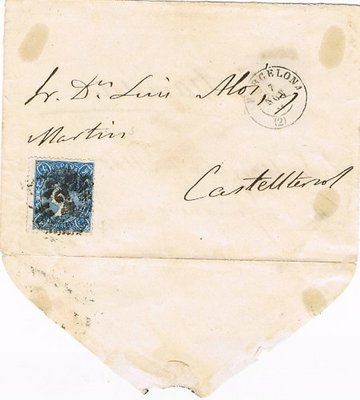 Sr. Dn. Luis Alosi y
Martin
Castelltersol
BARCELONA
7
NOV
(2)